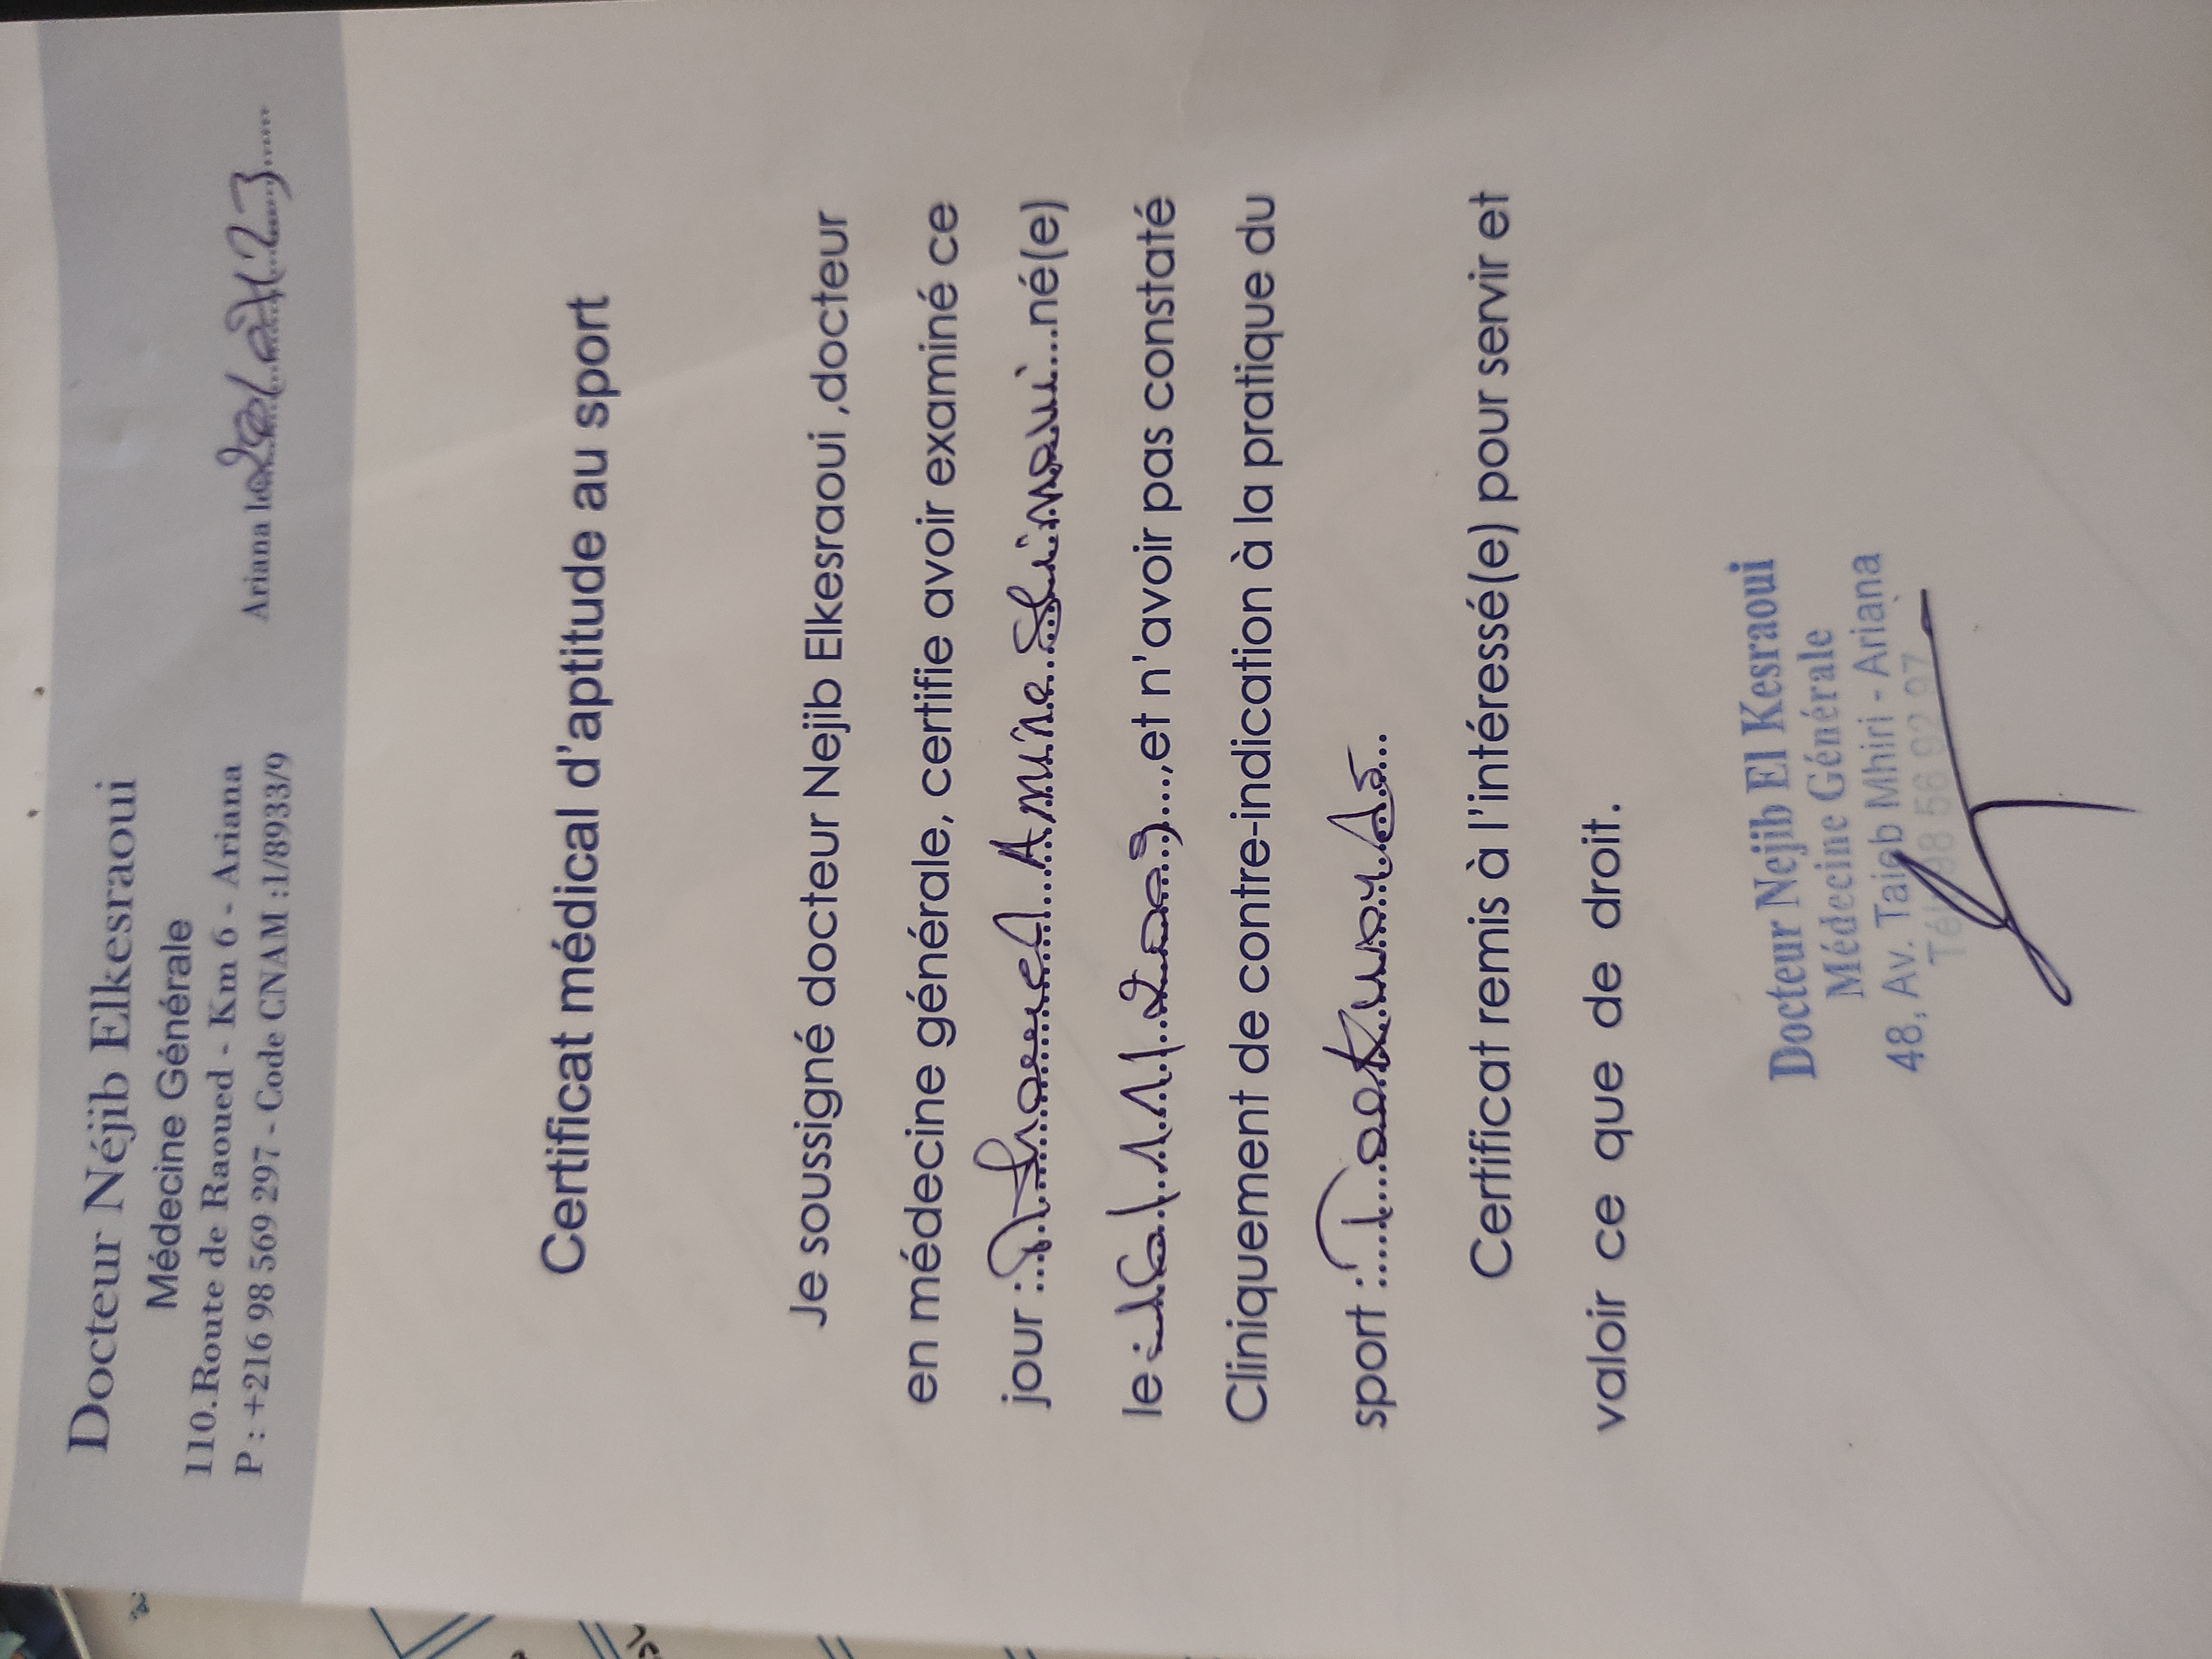 Docteur Néjib Elkesraoui
Médecine Générale
110.Route de Raoued - Km 6 - Ariana
P : +216 98 569 297 - Code CNAM :1/8933/9
Ariana le
Certificat médical d'aptitude au sport
Je soussigné docteur Nejib Elkesraoui ,docteur
en médecine générale, certifie avoir examiné ce
jour : Amine Slimani né(e)
le : ,et n'avoir pas constaté
Cliniquement de contre-indication à la pratique du
sport : Taekwondo
Certificat remis à l'intéressé(e) pour servir et
valoir ce que de droit.
Docteur Nejib El Kesraoui
Médecine Générale
48, Av. Taieb Mhiri - Ariana